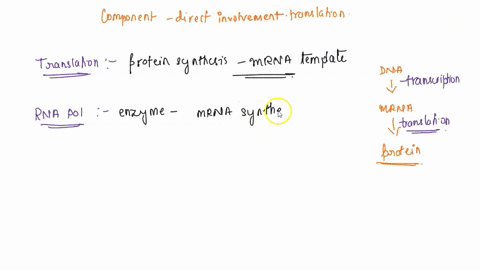 Component - direct involvement - translation.
Translation :- protein synthesis - mRNA template
RNA Pol :- enzyme - mRNA synthe
DNA
transcription
mRNA
translation
protein